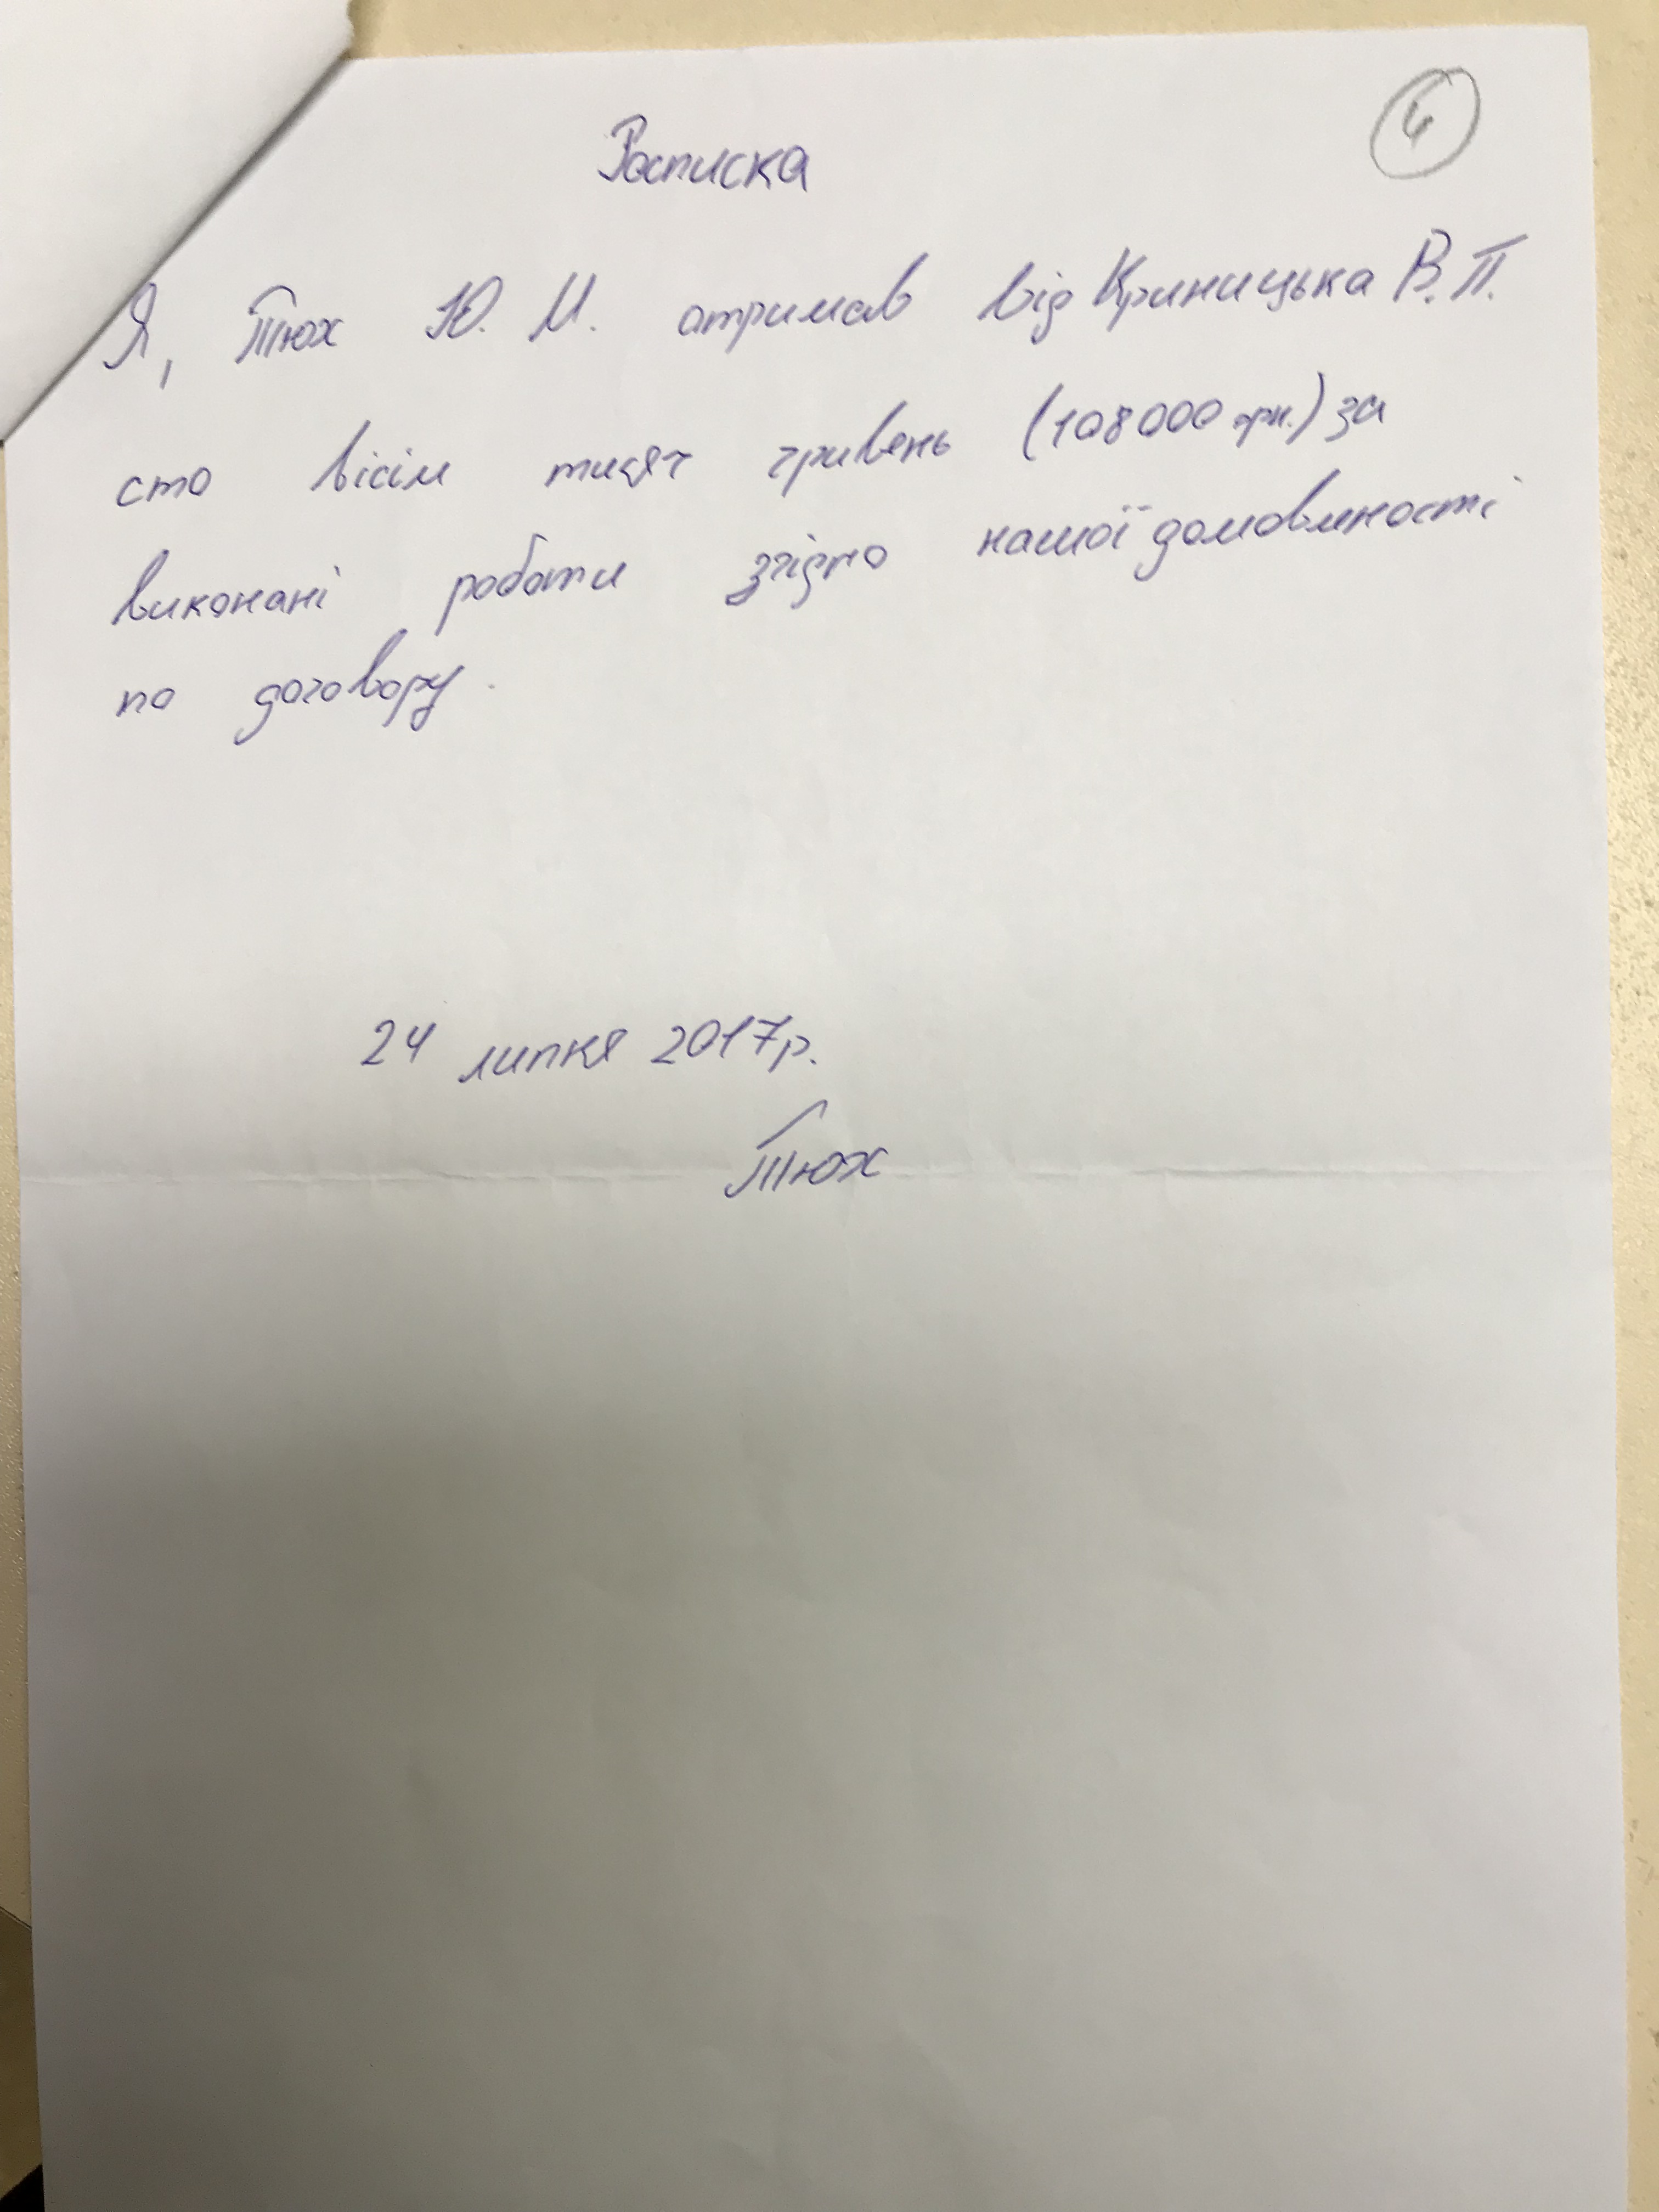 Росписка
Я, Тюх Ю. М. отримав від Криницька В.П.
сто вісім тисяч гривень (108000 грн.) за
виконані роботи згідно нашої домовленості
по договору.
24 липня 2017р.
Тюх